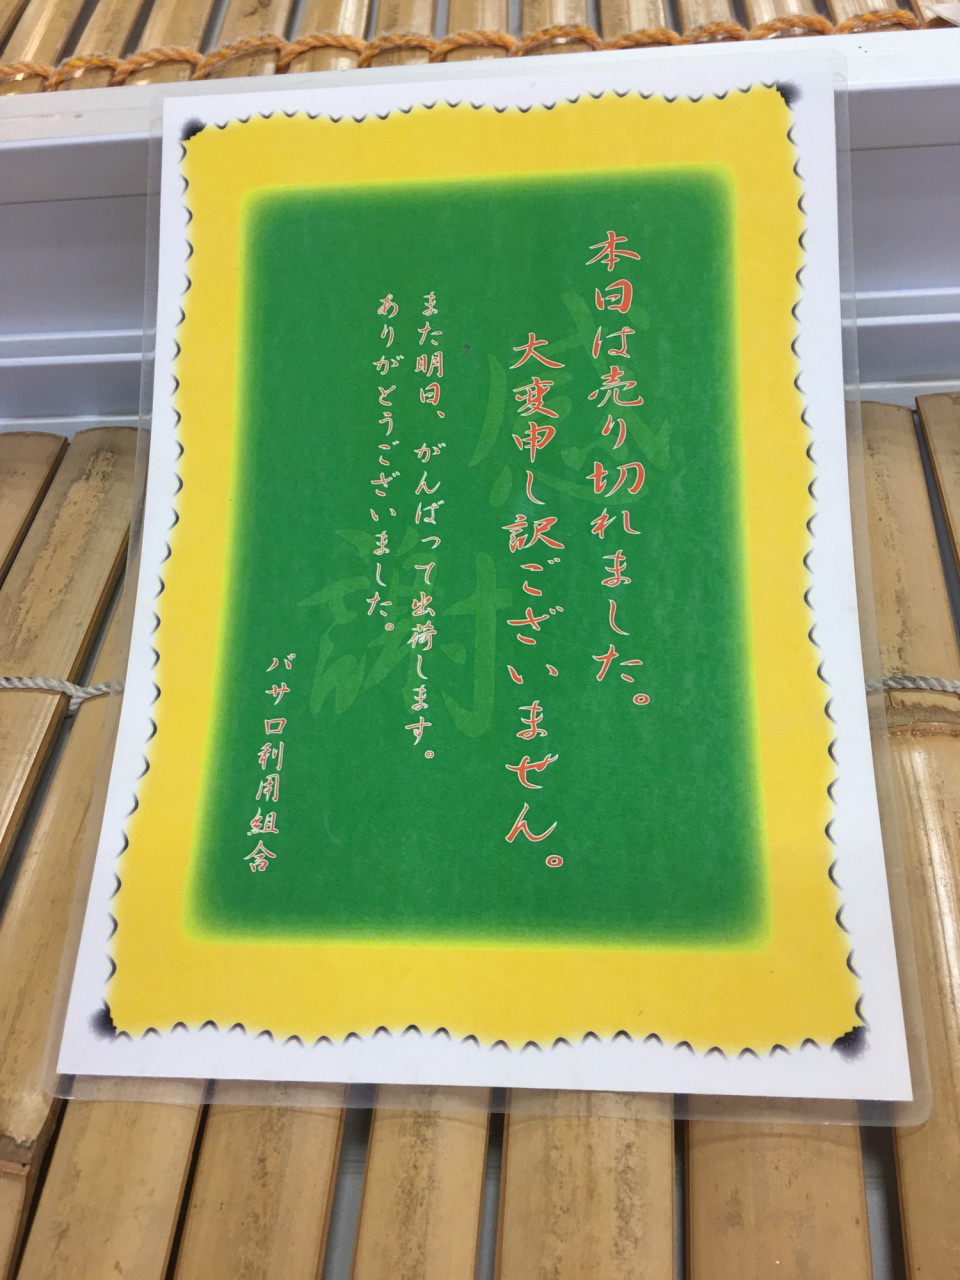 本日は売り切れました。
大変申し訳ございません。
また明日、がんばって出荷します。
ありがとうございました。
バサロ利用組合
感謝